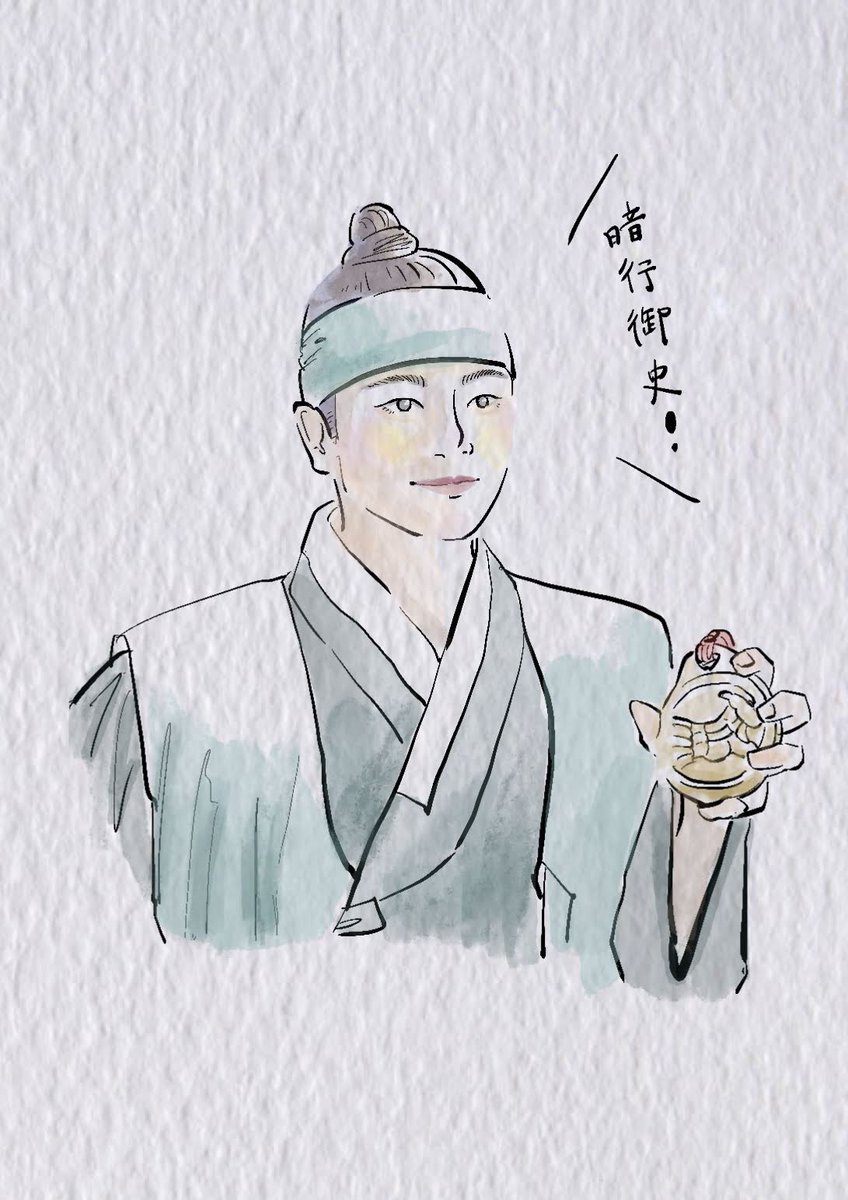 暗行御史!